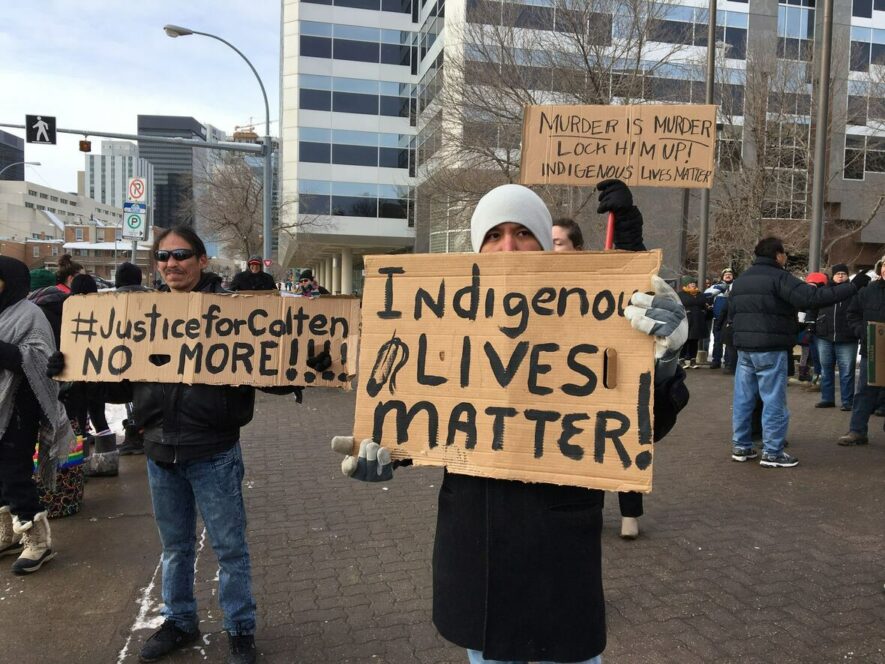 MURDER IS MURDER
LOCK HIM UP!
INDIGENOUS LIVES MATTER
#JusticeforColten
NO MORE!!!!
Indigenou
LIVES
MATTER!
P
P